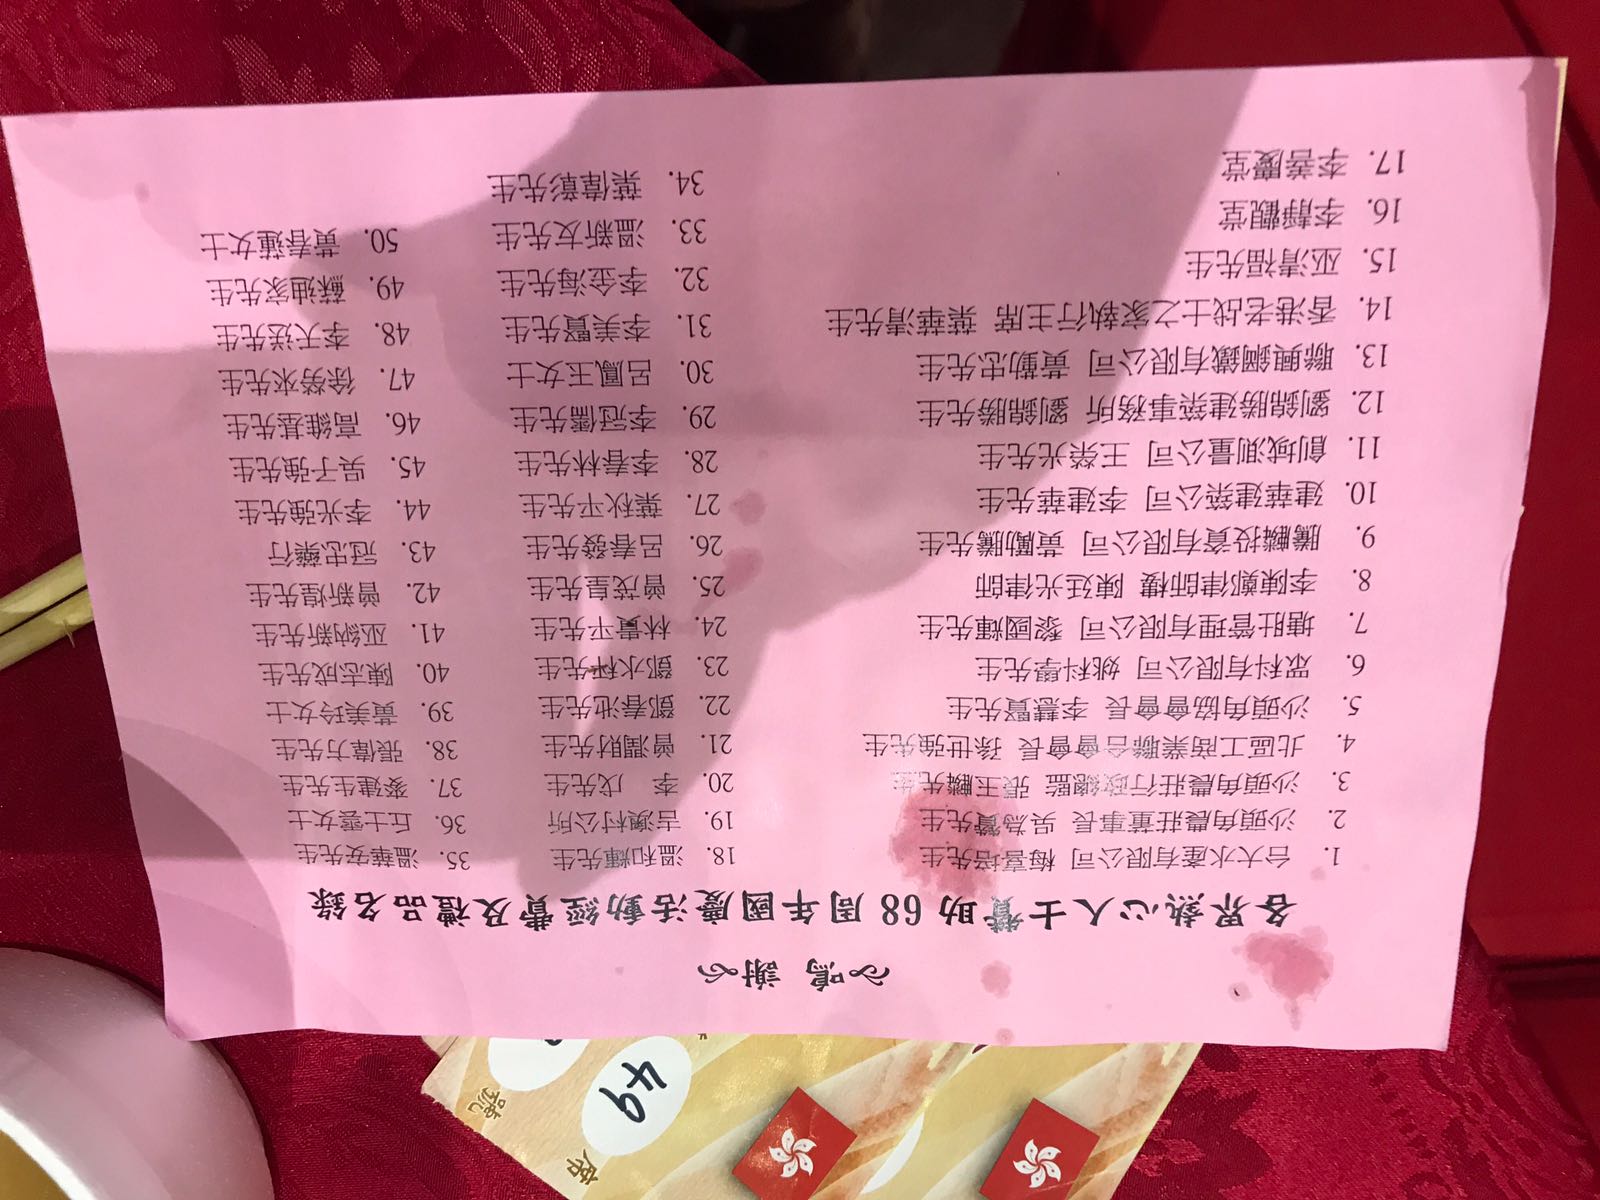 鳴 謝
各界熱心人士贊助 68 周年國慶活動經費及禮品名錄
1. 台大水產有限公司 梅喜培先生
2. 沙頭角農莊董事長 吳為贊先生
3. 沙頭角農莊行政總監 張玉麟先生
4. 北區工商業聯合會會長 孫世強先生
5. 沙頭角協會會長 李慧賢先生
6. 眾科有限公司 姚科學先生
7. 塘肚管理有限公司 黎國輝先生
8. 李陳鄭律師樓 陳廷光律師
9. 騰麟投資有限公司 黃勵騰先生
10. 建華建築公司 李建華先生
11. 創域測量公司 王榮光先生
12. 劉錦勝建築事務所 劉錦勝先生
13. 聯興鋼鐵有限公司 黃勤忠先生
14. 香港老战士之家執行主席 葉華清先生
15. 巫清福先生
16. 李靜觀堂
17. 李善慶堂
18. 溫和輝先生
19. 吉澳村公所
20. 李 戊先生
21. 曾潤財先生
22. 鄧春池先生
23. 鄧水秝先生
24. 林貴平先生
25. 曾茂皇先生
26. 呂春發先生
27. 葉秋平先生
28. 李春林先生
29. 李冠儒先生
30. 呂鳳玉女士
31. 李美賢先生
32. 李金海先生
33. 溫新友先生
34. 葉偉彰先生
35. 溫華安先生
36. 丘士雲女士
37. 麥建生先生
38. 張偉方先生
39. 黃美玲女士
40. 陳志成先生
41. 巫納新先生
42. 曾新煌先生
43. 冠忠藥行
44. 李光強先生
45. 吳子強先生
46. 高維基先生
47. 徐勞來先生
48. 李天送先生
49. 蘇迪家先生
50. 黃春蓮女士
席
49
號